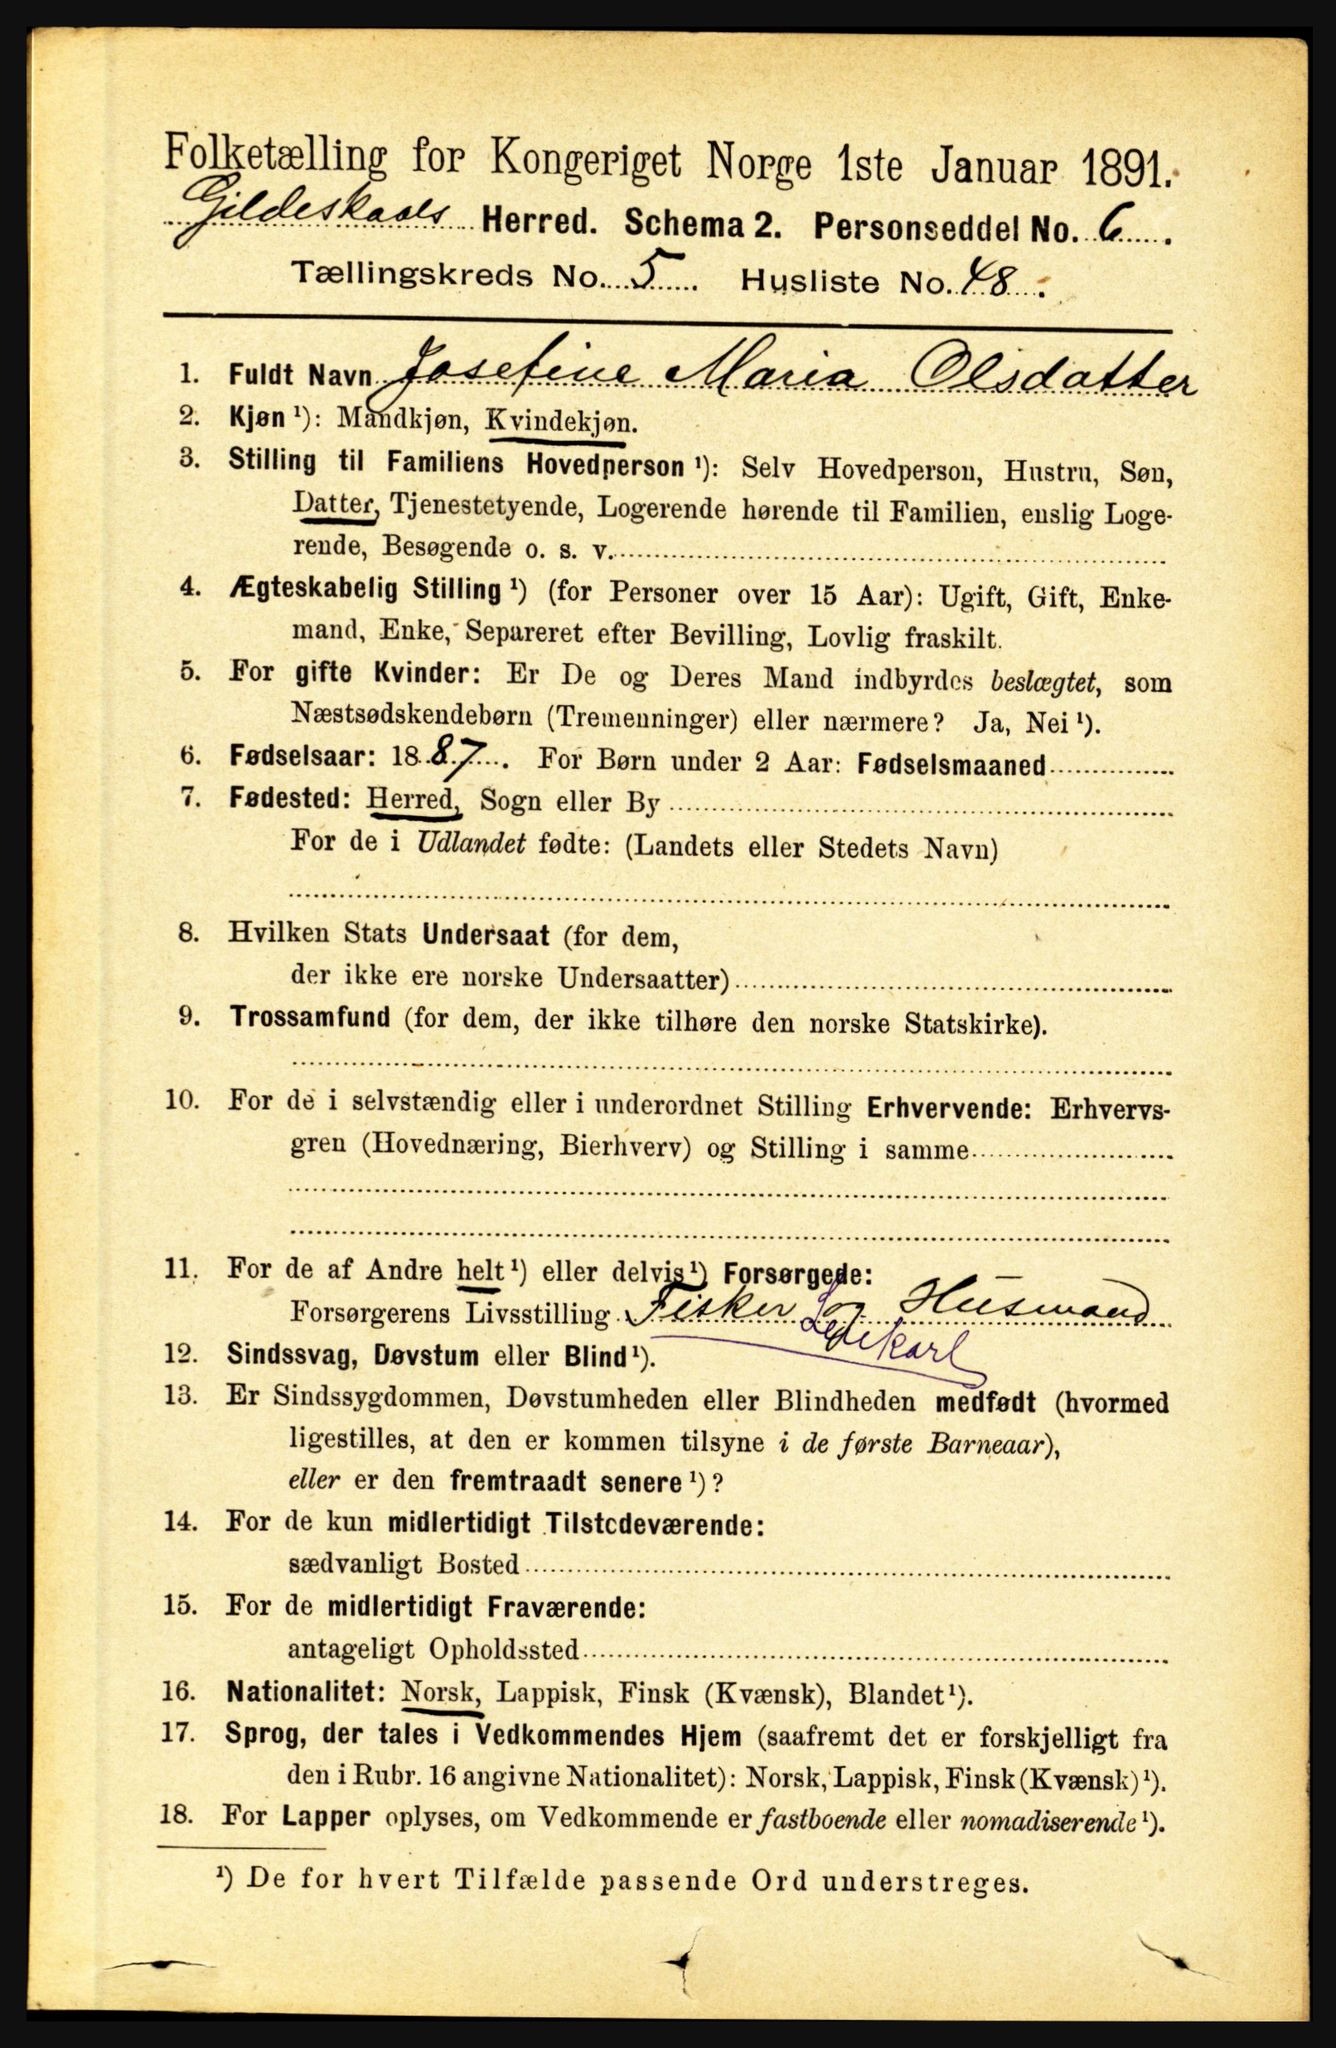 Folketælling for Kongeriget Norge 1ste Januar 1891.
Gildeskaals Herred. Schema 2. Personseddel No. 6.
Tællingskreds No. 5. Husliste No. 48.
1. Fuldt Navn Josefine Maria Olsdatter
2. Kjøn ¹): Mandkjøn, Kvindekjøn.
3. Stilling til Familiens Hovedperson ¹): Selv Hovedperson, Hustru, Søn,
Datter, Tjenestetyende, Logerende hørende til Familien, enslig Loge-
rende, Besøgende o. s. v.
4. Ægteskabelig Stilling ¹) (for Personer over 15 Aar): Ugift, Gift, Enke-
mand, Enke, Separeret efter Bevilling, Lovlig fraskilt.
5. For gifte Kvinder: Er De og Deres Mand indbyrdes beslægtet, som
Næstsødskendebørn (Tremenninger) eller nærmere? Ja, Nei ¹).
6. Fødselsaar: 1887. For Børn under 2 Aar: Fødselsmaaned
7. Fødested: Herred, Sogn eller By
For de i Udlandet fødte: (Landets eller Stedets Navn)
8. Hvilken Stats Undersaat (for dem,
der ikke ere norske Undersaatter)
9. Trossamfund (for dem, der ikke tilhøre den norske Statskirke).
10. For de i selvstændig eller i underordnet Stilling Erhvervende: Erhvervs-
gren (Hovednæring, Bierhverv) og Stilling i samme
11. For de af Andre helt ¹) eller delvis ¹) Forsørgede:
Forsørgerens Livsstilling Fisker og Husmand
12. Sindssvag, Døvstum eller Blind ¹).
13. Er Sindssygdommen, Døvstumheden eller Blindheden medfødt (hvormed
ligestilles, at den er kommen tilsyne i de første Barneaar),
eller er den fremtraadt senere ¹)?
14. For de kun midlertidigt Tilstedeværende:
sædvanligt Bosted
15. For de midlertidigt Fraværende:
antageligt Opholdssted
16. Nationalitet: Norsk, Lappisk, Finsk (Kvænsk), Blandet ¹).
17. Sprog, der tales i Vedkommendes Hjem (saafremt det er forskjelligt fra
den i Rubr. 16 angivne Nationalitet): Norsk, Lappisk, Finsk (Kvænsk) ¹).
18. For Lapper oplyses, om Vedkommende er fastboende eller nomadiserende ¹).
¹) De for hvert Tilfælde passende Ord understreges.